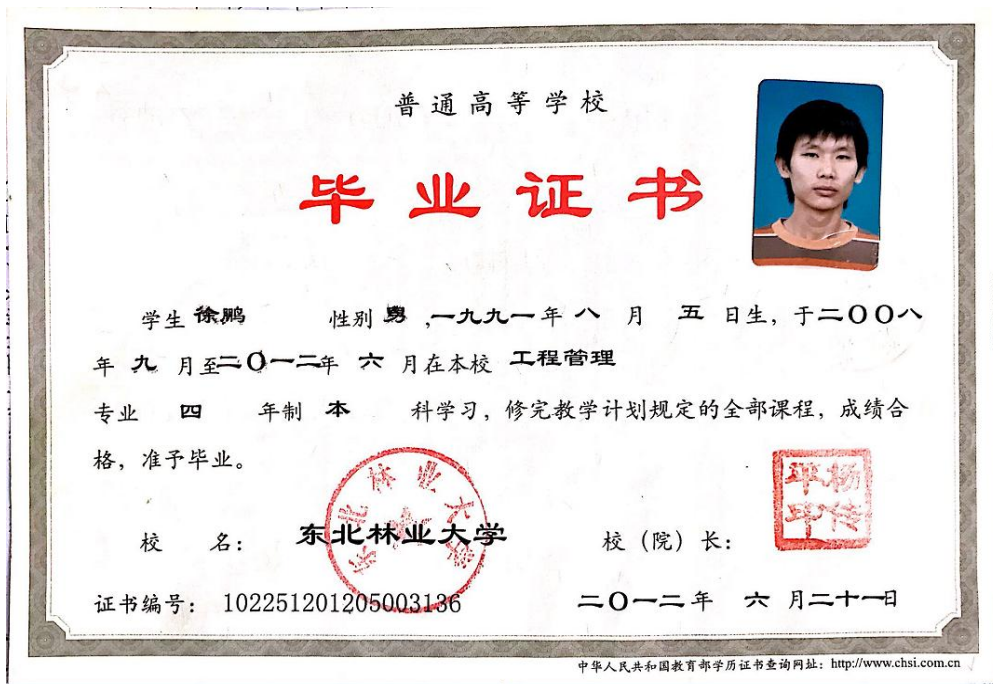 普通高等学校
毕业证书
学生 徐鹏 性别 男 ,一九九一年 八 月 五 日生，于二〇〇八
年 九 月至二〇一二年 六 月在本校 工程管理
专业 四 年制 本 科学习，修完教学计划规定的全部课程，成绩合
格，准予毕业。
校 名： 东北林业大学
东北林业大学
校（院）长：
杨传平印
证书编号： 102251201205003136
二〇一二年 六 月二十一日
中华人民共和国教育部学历证书查询网址：http://www.chsi.com.cn